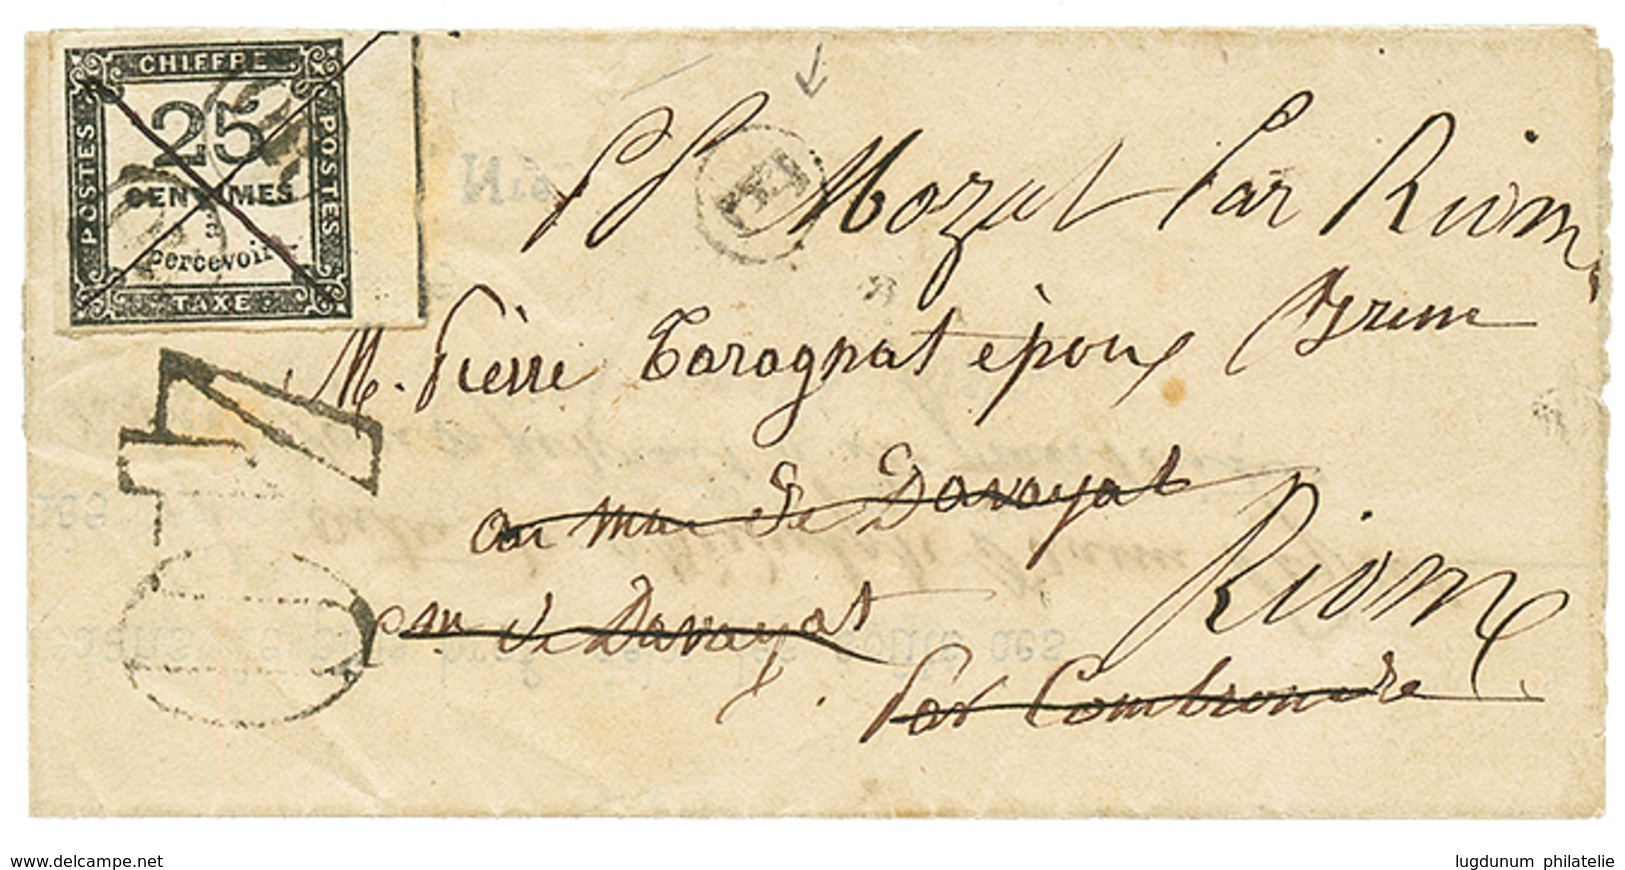 CHIFFRE
POSTES 25 POSTES
CENTIMES
à
percevoir
TAXE
Mozat Par Riom
M. Pierre Taragnat époux Brun
au mas de Davayat
Riom
de Davayat
Par Combronde
40
www.delcampe.net
lugdunum philatelie